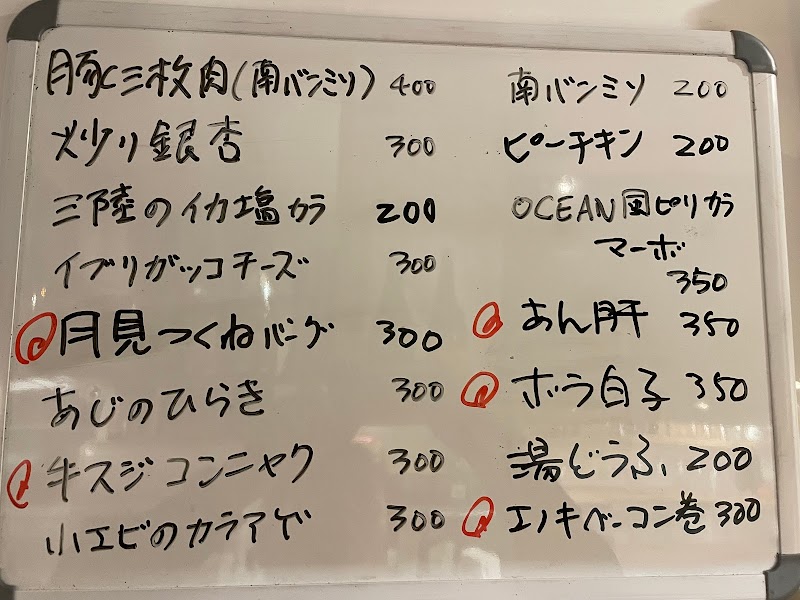 豚三枚肉(南バンミソ) 400
炒り銀杏 300
三陸のイカ塩カラ 200
イブリガッコチーズ 300
月見つくねバーグ 300
あじのひらき 300
牛スジコンニャク 300
小エビのカラアゲ 300
南バンミソ 200
ピーチキン 200
OCEAN風ピリカラ
マーボ
350
あん肝 350
ボラ白子 350
湯どうふ 200
エノキベーコン巻 300